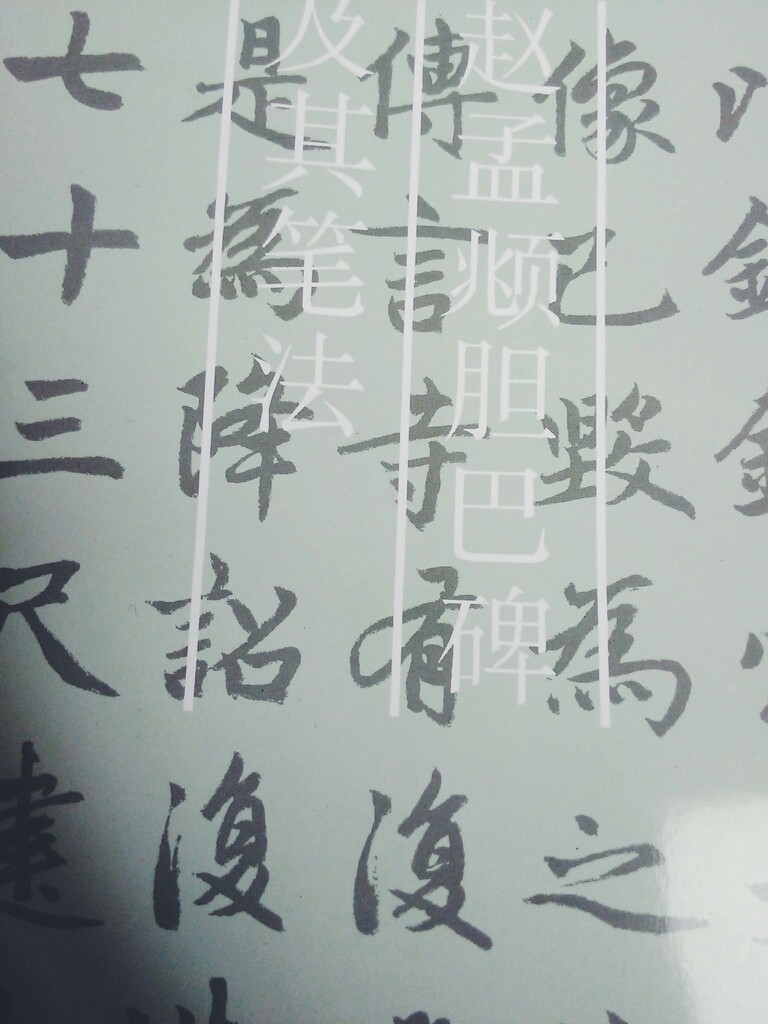 赵孟𫖯胆巴碑
及其笔法
像已毀為之
傳言寺有復
是為降詔復
七十三尺建